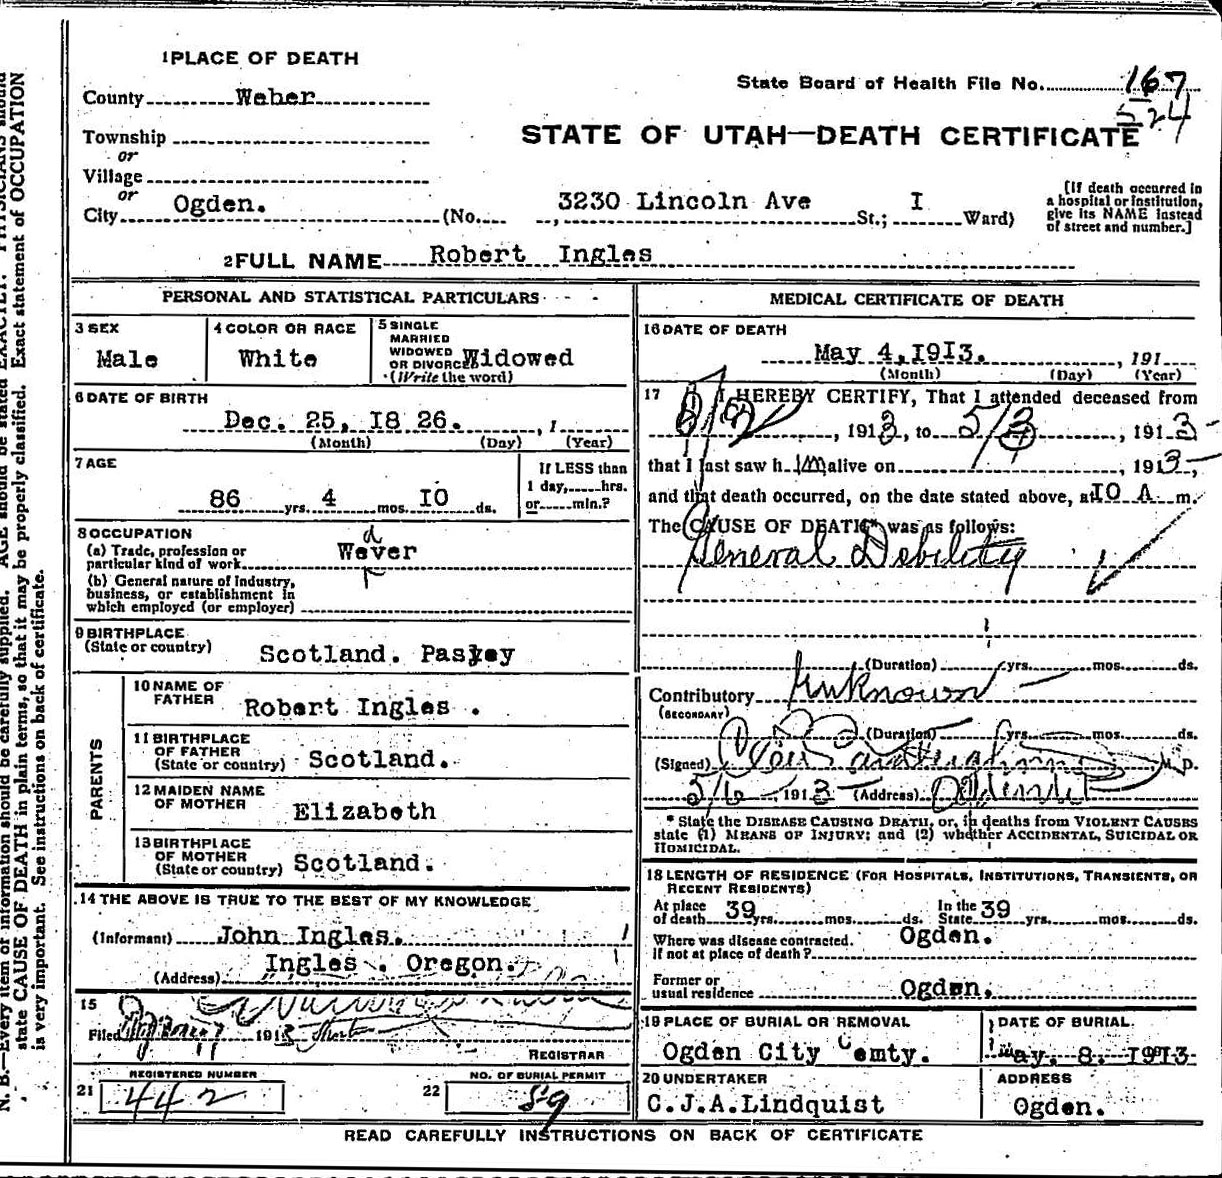 1 PLACE OF DEATH
County Weber
State Board of Health File No. 167
524
Township
or
Village
or
City Ogden. (No. 3230 Lincoln Ave St.; I Ward)
STATE OF UTAH—DEATH CERTIFICATE
[If death occurred in
a hospital or institution,
give its NAME instead
of street and number.]
2 FULL NAME Robert Ingles
PERSONAL AND STATISTICAL PARTICULARS
3 SEX
Male
4 COLOR OR RACE
White
5 SINGLE
MARRIED
WIDOWED
OR DIVORCED Widowed
(Write the word)
6 DATE OF BIRTH
Dec. 25, I8 26. , 1
(Month) (Day) (Year)
7 AGE
86 yrs. 4 mos. IO ds.
If LESS than
1 day, hrs.
or min.?
8 OCCUPATION
(a) Trade, profession or
particular kind of work Wever
(b) General nature of industry,
business, or establishment in
which employed (or employer)
9 BIRTHPLACE
(State or country) Scotland. Pasley
PARENTS
10 NAME OF
FATHER Robert Ingles .
11 BIRTHPLACE
OF FATHER
(State or country) Scotland.
12 MAIDEN NAME
OF MOTHER Elizabeth
13 BIRTHPLACE
OF MOTHER
(State or country) Scotland.
14 THE ABOVE IS TRUE TO THE BEST OF MY KNOWLEDGE
(Informant) John Ingles.
(Address) Ingles . Oregon.
15
Filed 1913
REGISTRAR
21 REGISTERED NUMBER
442
22 NO. OF BURIAL PERMIT
89
MEDICAL CERTIFICATE OF DEATH
16 DATE OF DEATH
May 4, I9I3. , 191
(Month) (Day) (Year)
17 I HEREBY CERTIFY, That I attended deceased from
, 1913, to 5/3 , 1913
that I last saw h im alive on , 1913,
and that death occurred, on the date stated above, at IO A m.
The CAUSE OF DEATH* was as follows:
General Debility
(Duration) yrs. mos. ds.
Contributory Unknown
(SECONDARY)
(Duration) yrs. mos. ds.
(Signed) M. D.
5/6 , 1913 (Address) Ogden Ut
* State the DISEASE CAUSING DEATH, or, in deaths from VIOLENT CAUSES
state (1) MEANS OF INJURY; and (2) whether ACCIDENTAL, SUICIDAL OR
HOMICIDAL.
18 LENGTH OF RESIDENCE (FOR HOSPITALS, INSTITUTIONS, TRANSIENTS, OR
RECENT RESIDENTS)
At place
of death 39 yrs. mos. ds.
In the
State 39 yrs. mos. ds.
Where was disease contracted.
If not at place of death? Ogden.
Former or
usual residence Ogden.
19 PLACE OF BURIAL OR REMOVAL
Ogden City Cemty.
DATE OF BURIAL.
May. 8. I9I3
20 UNDERTAKER
C.J.A.Lindquist
ADDRESS
Ogden.
READ CAREFULLY INSTRUCTIONS ON BACK OF CERTIFICATE
N. B.—Every item of information should be carefully supplied. AGE should be stated EXACTLY. PHYSICIANS should
state CAUSE OF DEATH in plain terms, so that it may be properly classified. Exact statement of OCCUPATION
is very important. See instructions on back of certificate.